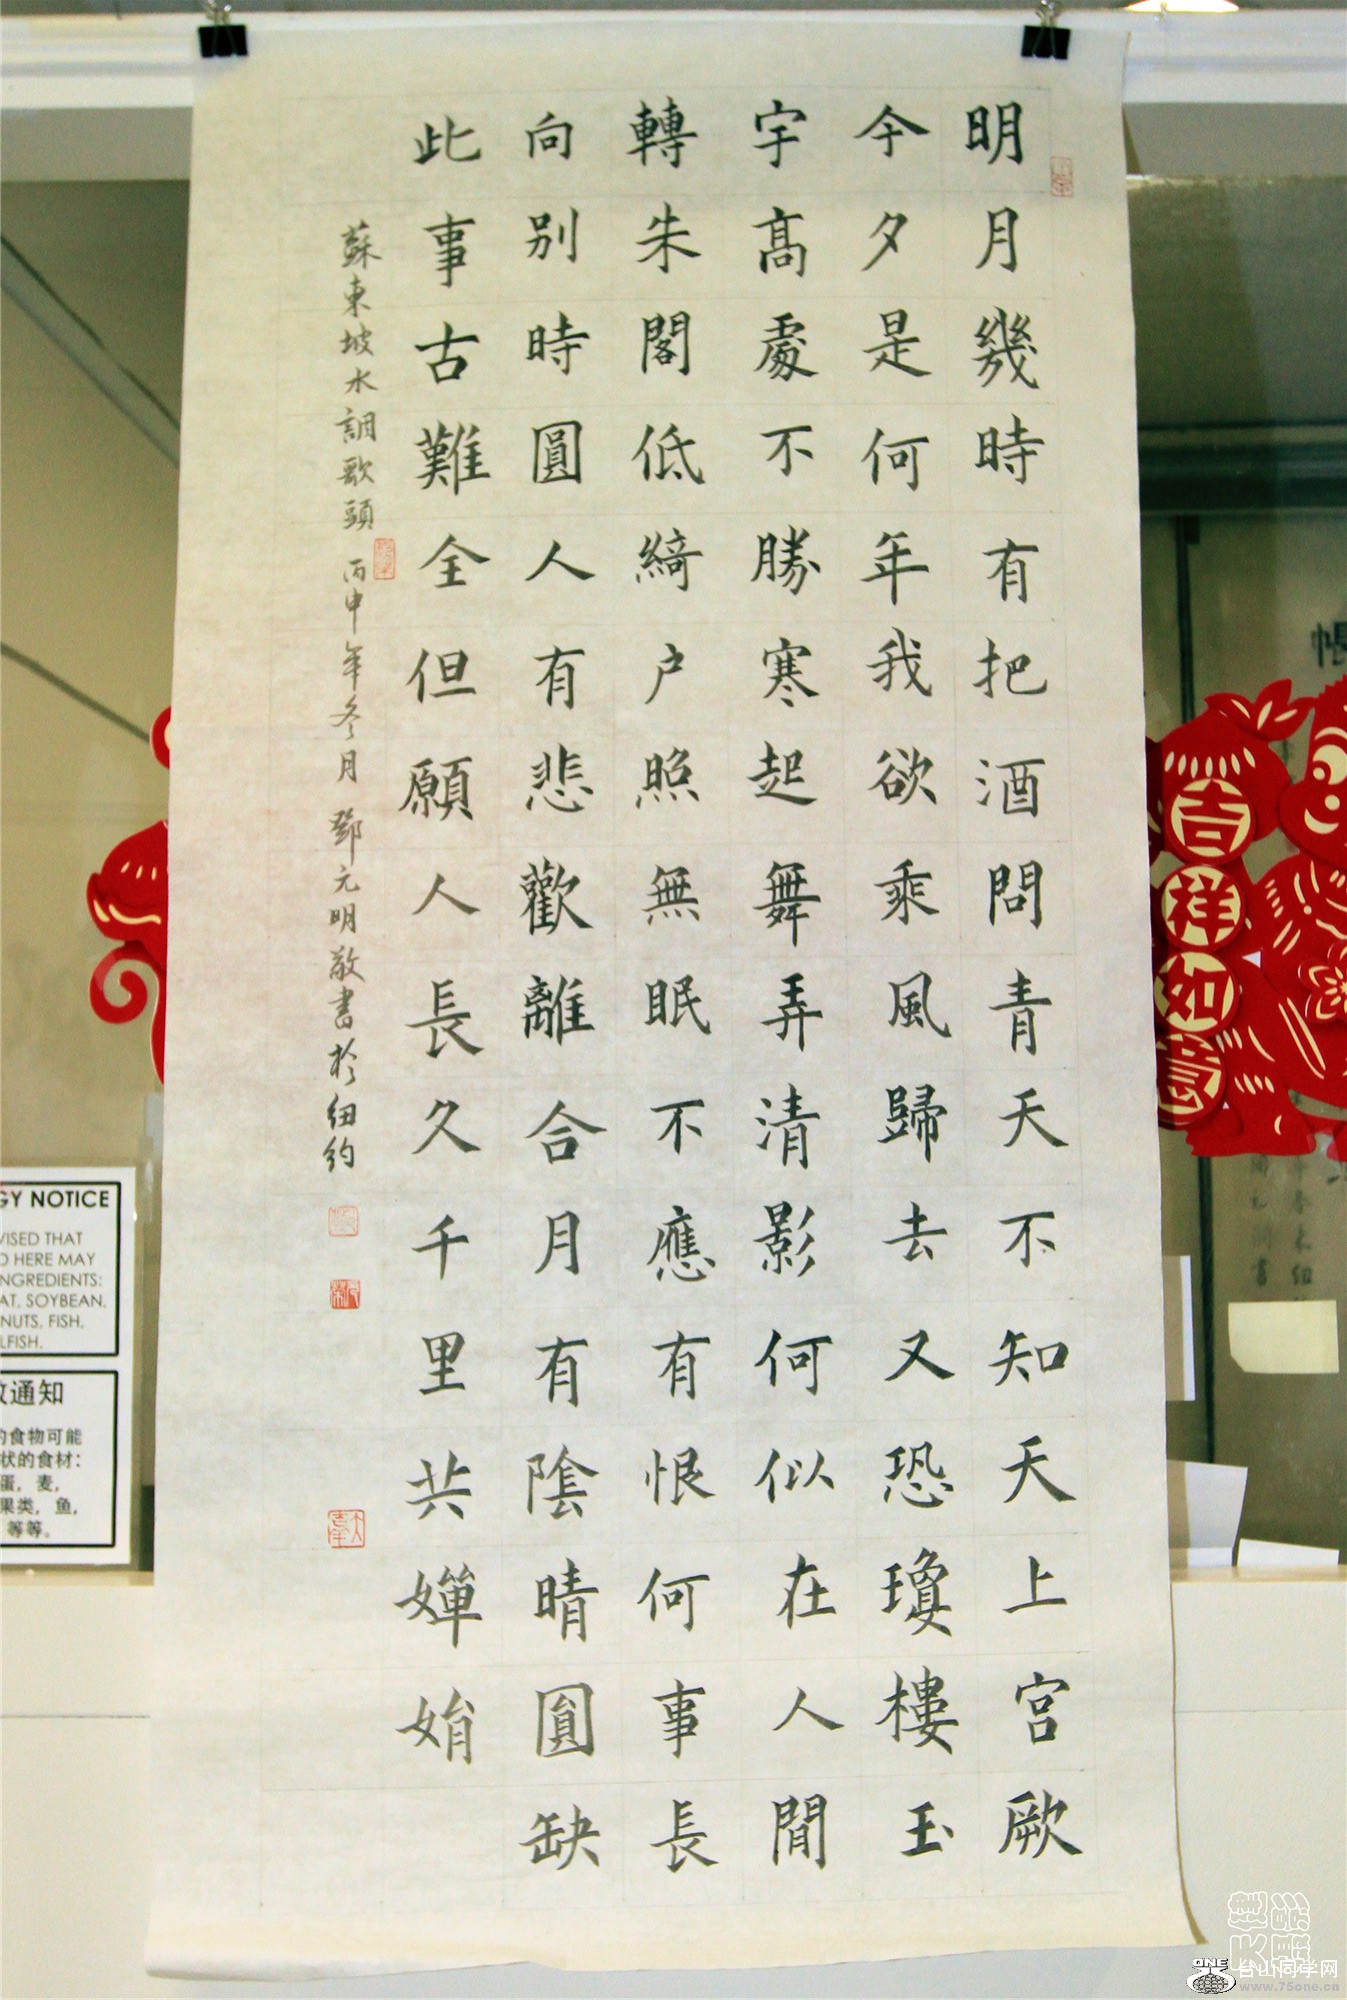 明月幾時有把酒問青天不知天上宮厥
今夕是何年我欲乘風歸去又恐瓊樓玉
宇高處不勝寒起舞弄清影何似在人間
轉朱閣低綺户照無眠不應有恨何事長
向别時圓人有悲歡離合月有陰晴圓缺
此事古難全但願人長久千里共嬋娟
蘇東坡水調歌頭 丙申年冬月 鄧元明敬書於紐約
吉祥如意
GY NOTICE
VISED THAT
D HERE MAY
NGREDIENTS:
AT, SOYBEAN,
NUTS, FISH,
LFISH.
通知
的食物可能
状的食材：
蛋，麦，
果类，鱼，
等等。
ONE
台山同学网
www.75one.cn